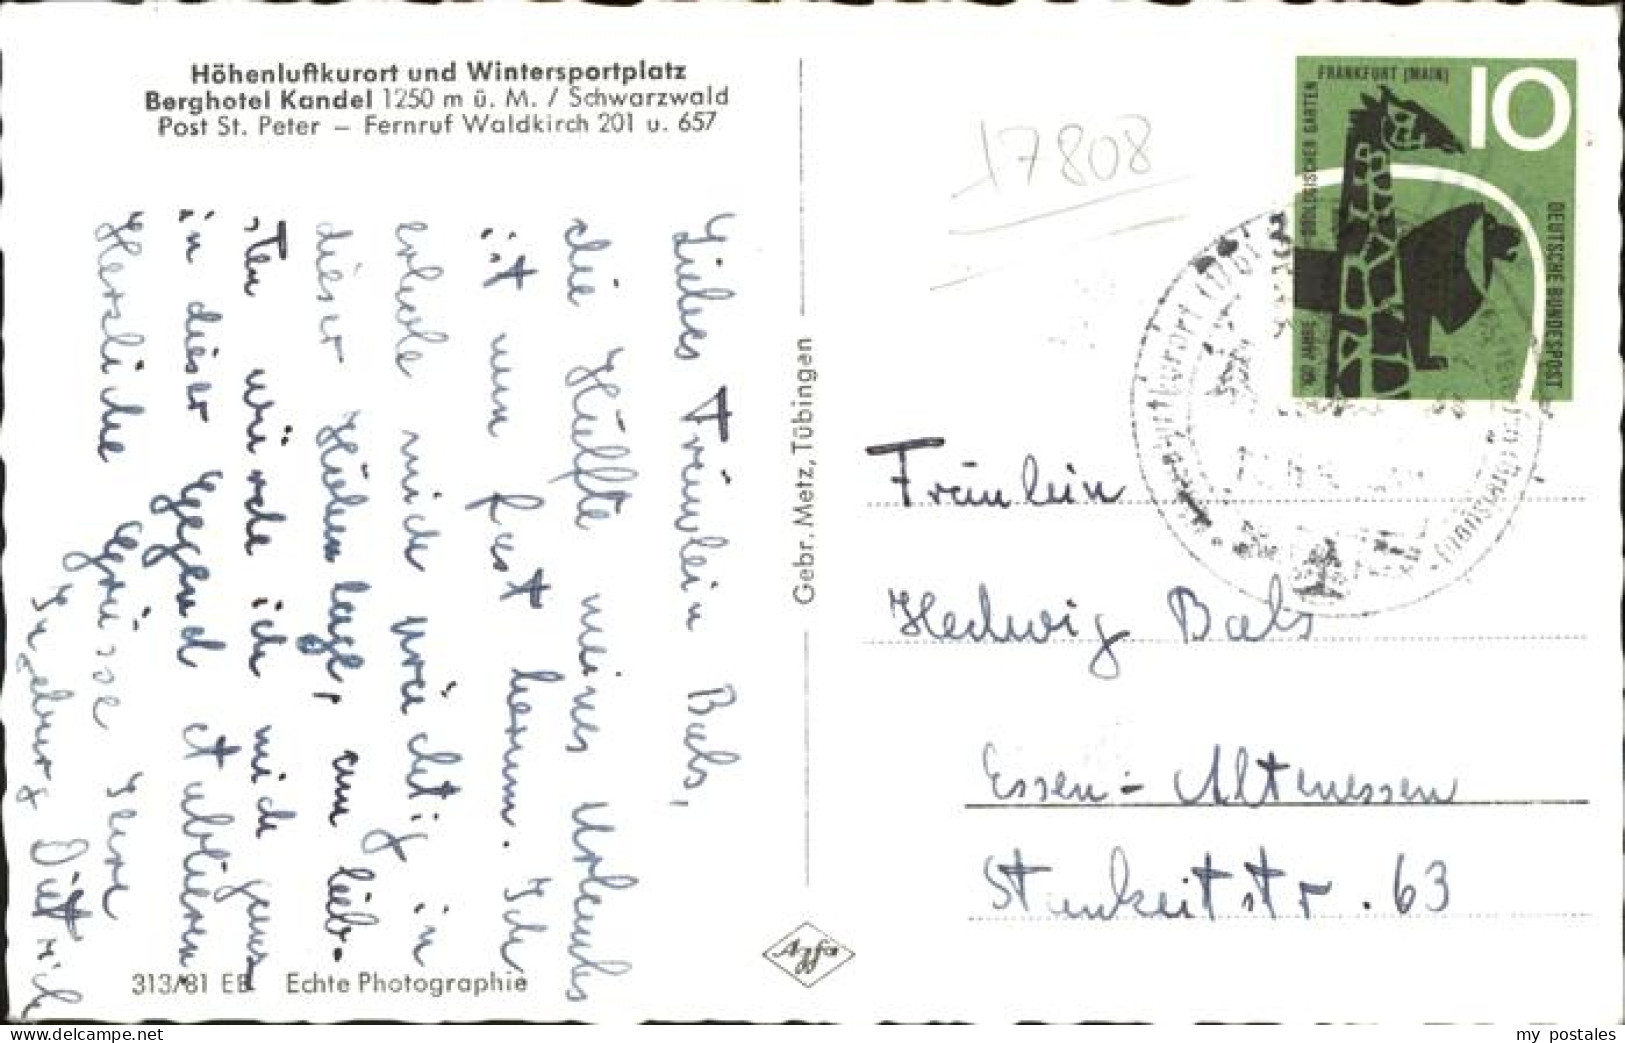 Höhenluftkurort und Wintersportplatz
Berghotel Kandel 1250 m ü. M. / Schwarzwald
Post St. Peter – Fernruf Waldkirch 201 u. 657
Liebes Fräulein Bals,
die Hälfte meines Urlaubs
ist nun fast herum. Ich
erhole mich prächtig in
dieser Höhenlage, am lieb-
sten würde ich mich ganz
in dieser Gegend etablieren
Herzliche Grüsse Ihre
Ingeburg Dietrich
313/81 EB Echte Photographie
Gebr. Metz, Tübingen
Agfa
17808
FRANKFURT (MAIN)
10
ZOOLOGISCHER GARTEN
100 JAHRE
DEUTSCHE BUNDESPOST
Fräulein
Hedwig Bals
Essen - Altenessen
str. 63
my postales
www.delcampe.net